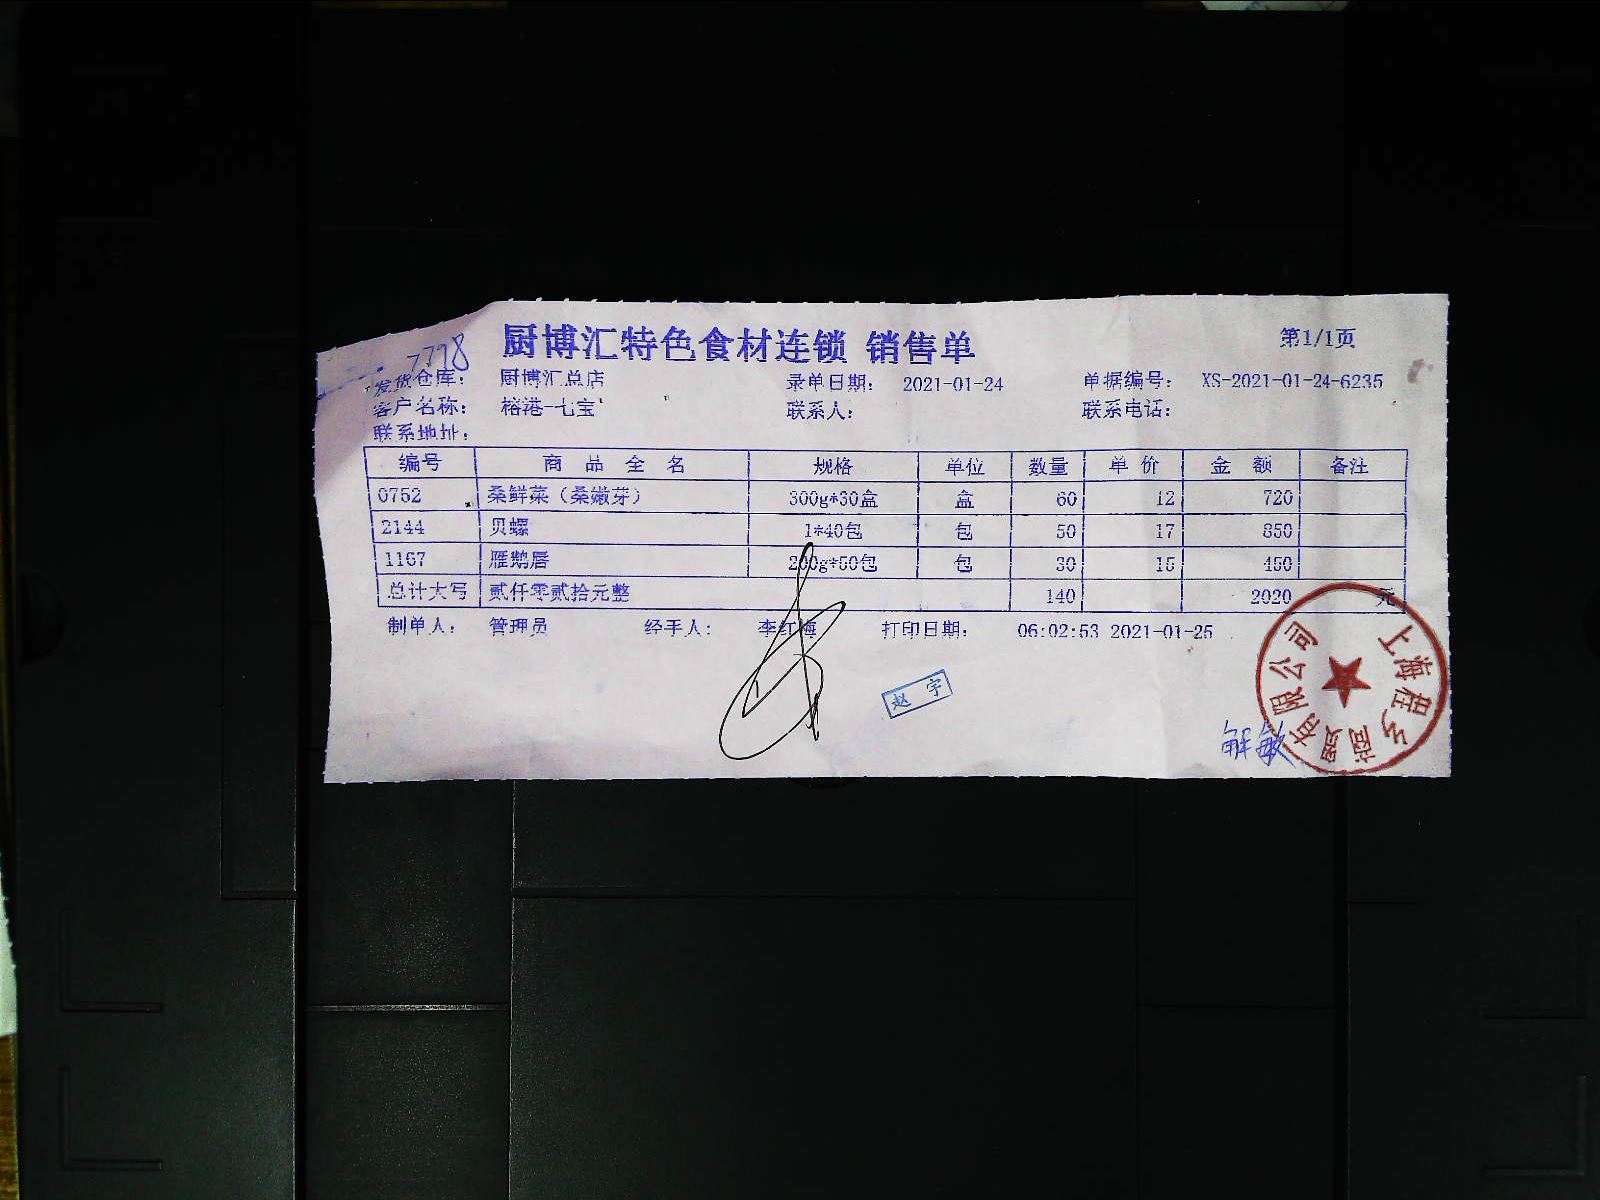 7798
厨博汇特色食材连锁 销售单 第1/1页
发货仓库： 厨博汇总店 录单日期： 2021-01-24 单据编号： XS-2021-01-24-6235
客户名称： 榕港-七宝 联系人： 联系电话：
联系地址：
编号 商品全名 规格 单位 数量 单价 金额 备注
0752 桑鲜菜（桑嫩芽） 300g*30盒 盒 60 12 720
2144 贝螺 1*40包 包 50 17 850
1167 雁鹅唇 200g*50包 包 30 15 450
总计大写 贰仟零贰拾元整 140 2020 元
制单人： 管理员 经手人： 李红梅 打印日期： 06:02:53 2021-01-25
赵宇
解敏
上海程乡商贸有限公司